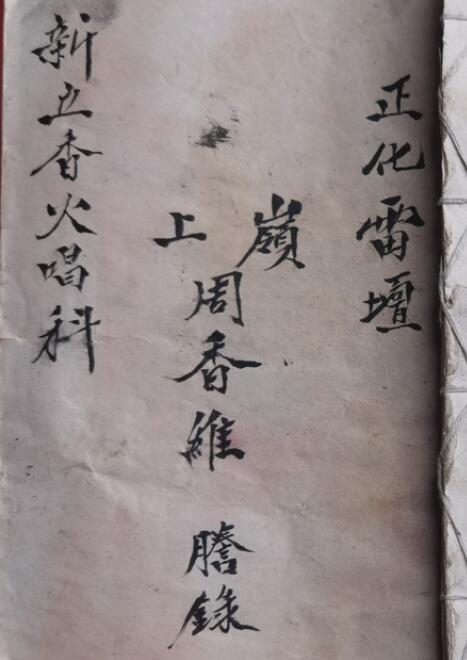 正化雷壇
嶺上周香維 謄錄
新立香火唱科